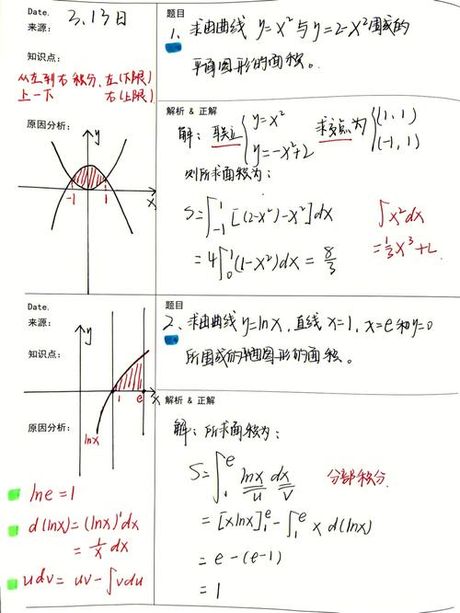 Date. 3.13日
来源：
知识点：
从左到右积分、左(下限)
上一下 右(上限)
原因分析：
y
-1 1 x
题目
1、求由曲线 y=x²与y=2-x²围成的
平面图形的面积。
解析 & 正解
解：联立 {y=x² y=-x²+2 求交点为 {(1,1) (-1,1)
则所求面积为：
S=∫₋₁¹[(2-x²)-x²]dx
=4∫₀¹(1-x²)dx=8/3
∫x²dx
=1/3x³+C
Date.
来源：
知识点：
原因分析：
y
1 e x
lnx
lne=1
d(lnx)=(lnx)'dx
=1/x dx
udv=uv-∫vdu
题目
2、求由曲线y=lnx，直线x=1，x=e和y=0
所围成的平面图形的面积。
解析 & 正解
解：所求面积为：
S=∫₁ᵉ lnx dx 分部积分
u v
=[xlnx]₁ᵉ-∫₁ᵉ x d(lnx)
=e-(e-1)
=1